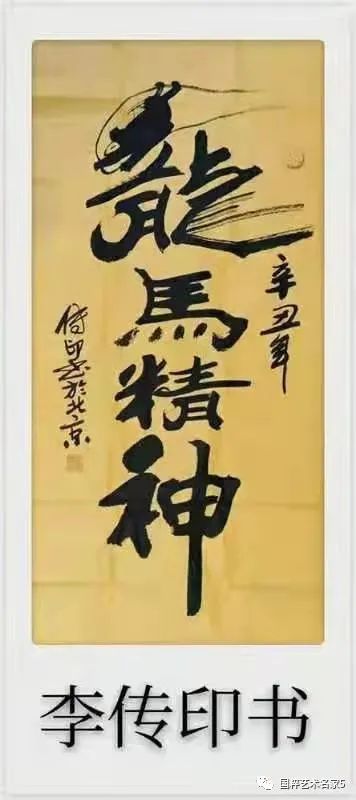 龍馬精神
辛丑年
传印书於北京
李传印书
国粹艺术名家5